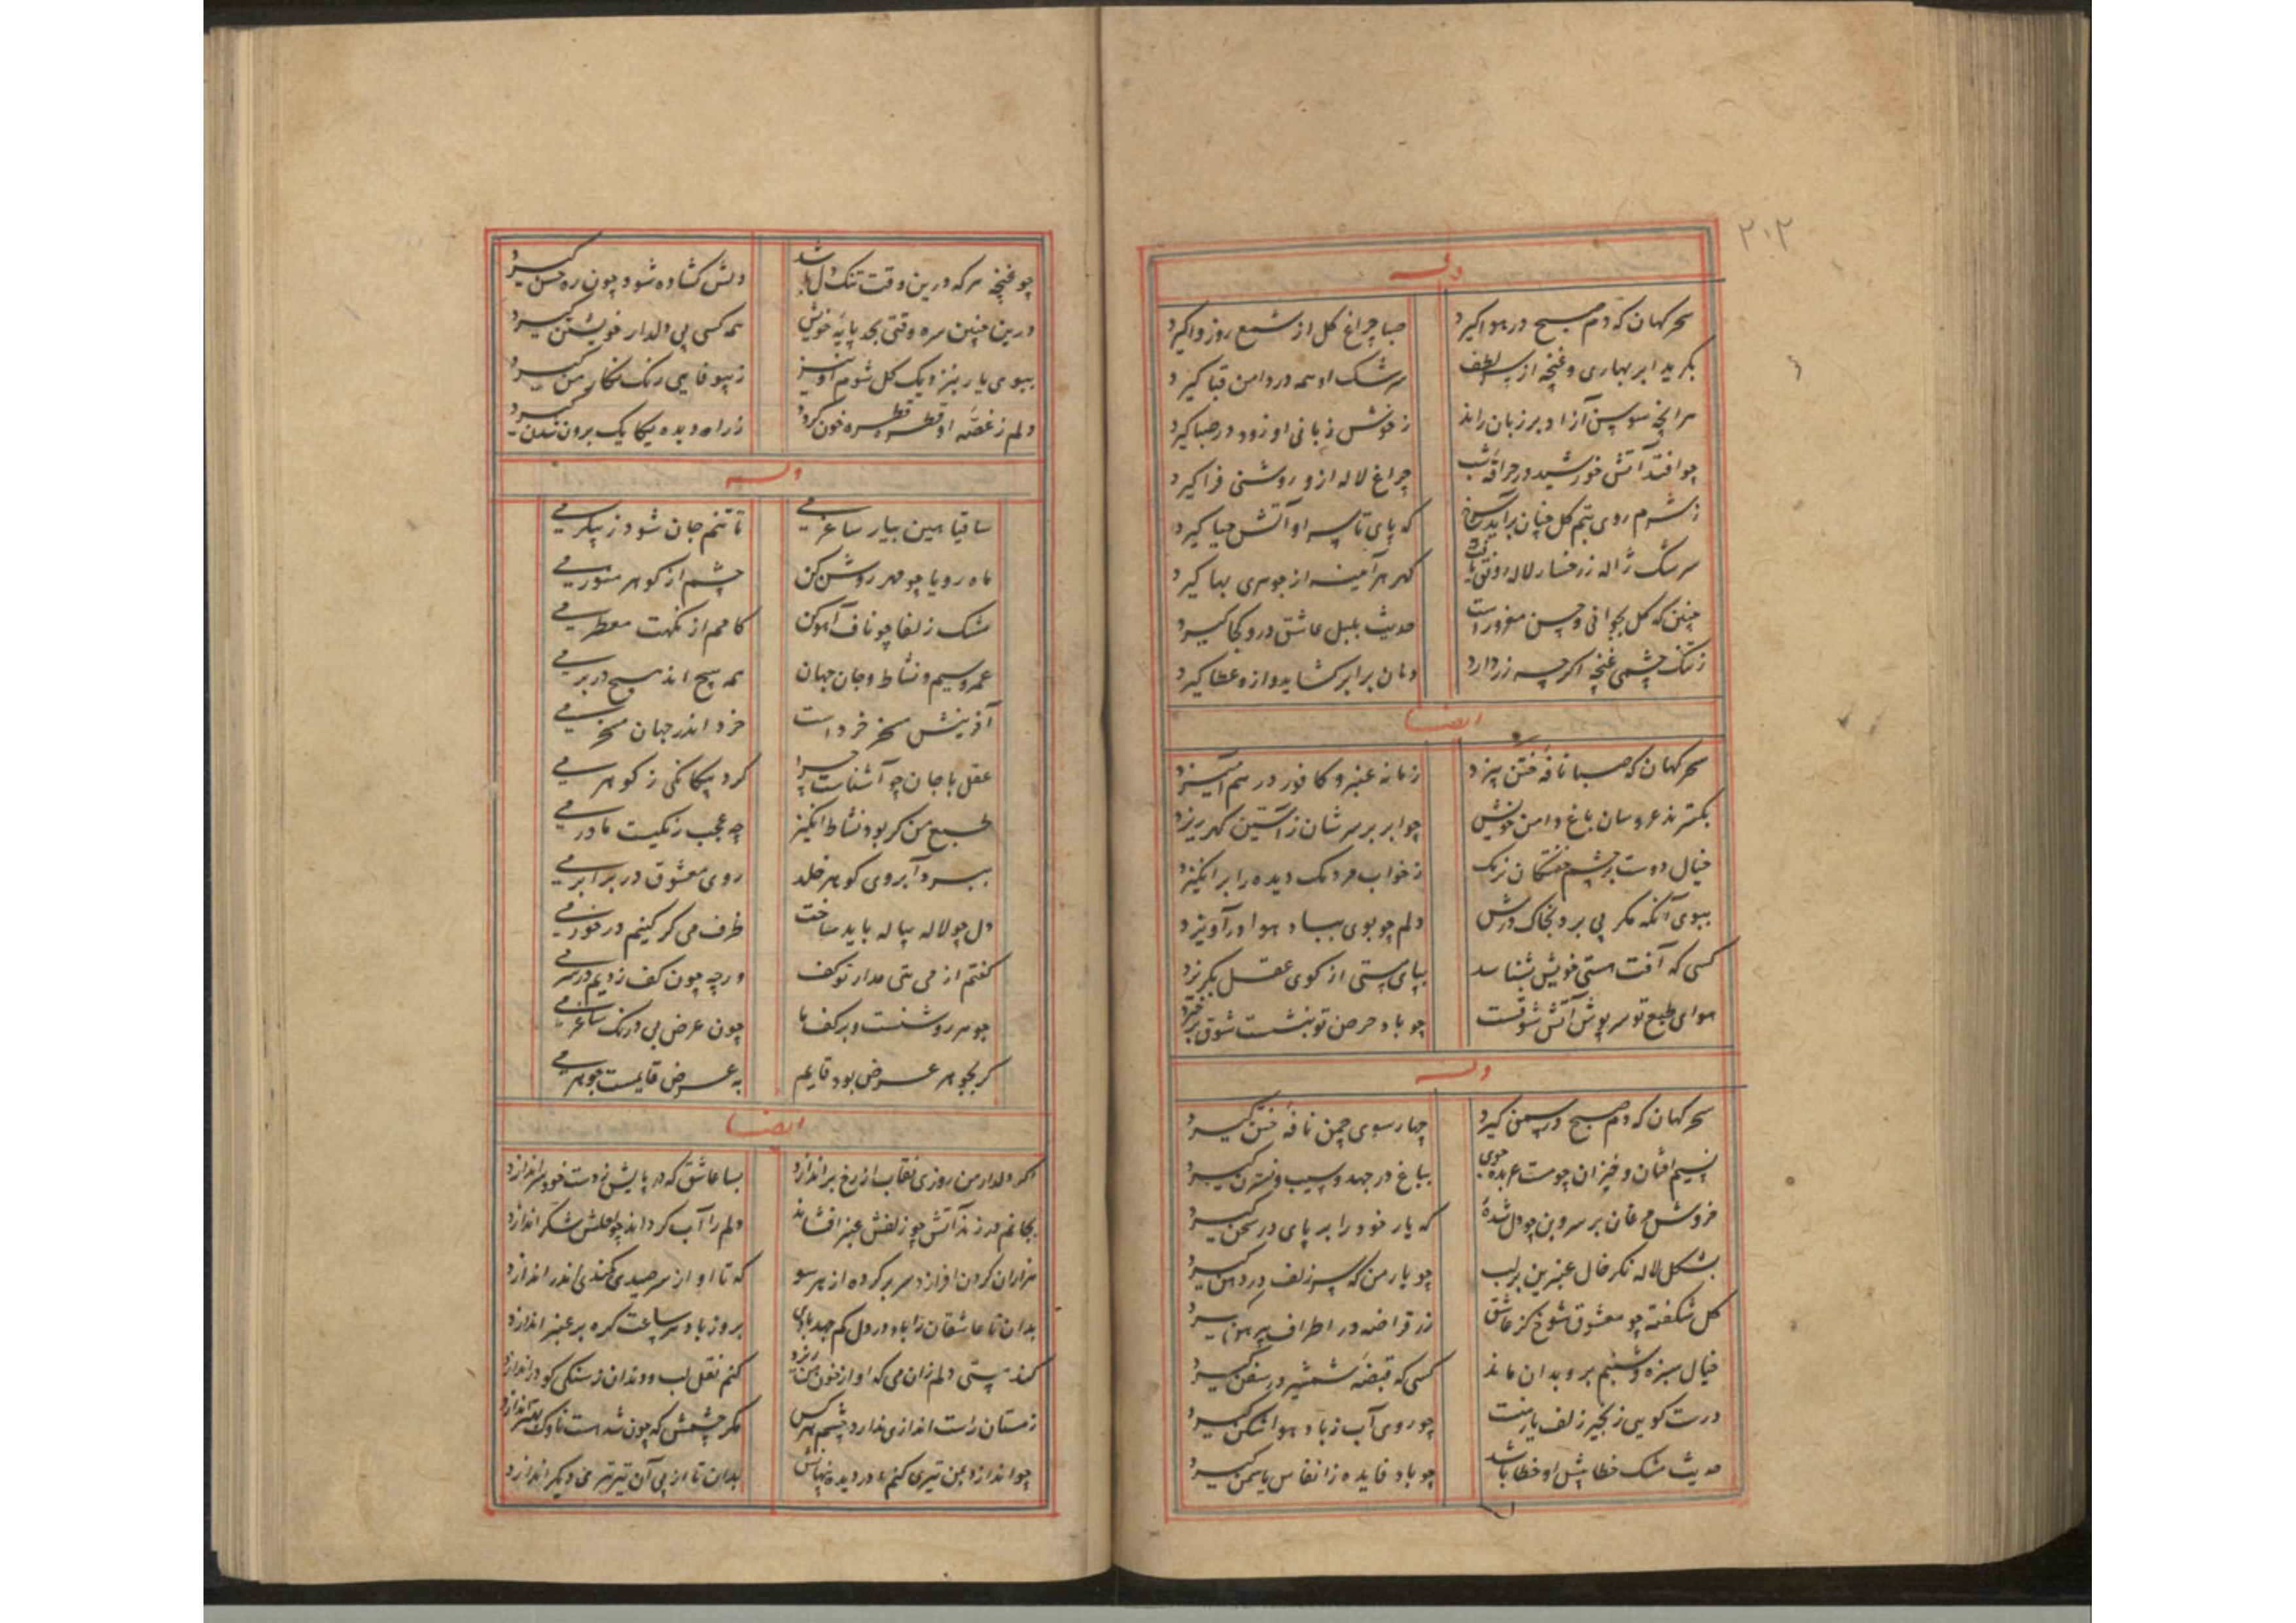 ۲۰۲
وله
سحرکهان که دم صبح در هوا کیرد
صبا چراغ کل از شمع روز واکیرد
بکرید ابر بهاری و غنچه از لطف
سرشک او همه در دامن قبا کیرد
هر انچ سوسن آزاد بر زبان راند
ز خوش زبانی او زود در صبا کیرد
چو افتد آتش خورشید در حراقه شب
چراغ لاله ازو روشنی فرا کیرد
ز شرم روی بتم کل چنان برآید سرخ
که پای تا سر او آتش حیا کیرد
سرشک ژاله ز رخسار لاله رونق یافت
کهر هر آینه از جوهری بها کیرد
چنین که کل بجوانی و حسن مغرورست
حدیث بلبل عاشق درو کجا کیرد
ز تنک چشمی غنچه اکرچه زر دارد
دهان برابر کشاید و ازو عطا کیرد
ایضا
سحرکهان که صبا نافه ختن بیزد
زمانه عنبر و کافور در هم آمیزد
بکسترند عروسان باغ دامن خویش
چو ابر بر سرشان ز آستین کهر ریزد
خیال دوست بر چشم خفتکان نرمک
ز خواب مردمک دیده را برانکیزد
ببوی آنکه مکر پی برد بخاک درش
دلم چو بوی بباد هوا درآویزد
کسی که آفت هستی خویش بشناسد
بپای مستی از کوی عقل بکریزد
هوای طبع تو سرپوش آتش شوقست
چو باد حرص تو بنشست شوق برخیزد
وله
سحرکهان که دم صبح در چمن کیرد
چهار سوی چمن نافه ختن کیرد
نسیم افتان و خیزان چو مست عربده جوی
بباغ درجهد و سیب و نسترن کیرد
خروش مرغان بر سرو بن چو دلشده
که یار خود را بر پای در سخن کیرد
بشکل لاله نکر خال عنبرین بر لب
چو یار من که سر زلف در دهن کیرد
کل شکفته چو معشوق شوخ کز عاشق
زر قراضه در اطراف پیرهن کیرد
خیال سبزه و شبنم برو بدان ماند
کسی که قبضه شمشیر در سفن کیرد
درست کویی زنجیر زلف یار منست
چو روی آب ز باد هوا شکن کیرد
حدیث مشک خطا پیش او خطا باشد
چو باد فایده ز انفاس یاسمن کیرد
چو غنچه هر که درین وقت تنک دل باشد
دلش کشاده شود چون ره چمن کیرد
درین چنین سره وقتی بجد پایه خویش
همه کسی پی دلدار خویشتن کیرد
ببوی یار بنزدیک کل شوم او نیز
ز بیوفایی رنک نکار من کیرد
دلم ز غصه او قطره قطره خون کردد
ز راه دیده یکایک برون شدن کیرد
وله
ساقیا هین بیار ساغر می
تا تنم جان شود ز پیکر می
ماه رویا چو مهر روشن کن
چشم از کوهر منور می
مشک زلفا چو ناف آهو کن
کامم از نکهت معطر می
عمر و سیم و نشاط و جان جهان
همه هیچ اند هیچ در بر می
آفرینش مسخر خردست
خرد اندر جهان مسخر می
عقل با جان چو آشناست چرا
کرد بیکانکی ز کوهر می
طبع من کر بود نشاط انکیز
چه عجب زنکیست مادر می
ببرد آبروی کوهر خلد
روی معشوق در برابر می
دل چو لاله پیاله باید ساخت
ظرف می کر کنیم در خور می
کفتم از می تهی مدار تو کف
ورچه چون کف زدیم در سر می
جوهر روشنست و بر کف ما
چون عرض بی درنک ساغر می
کر بجوهر عرض بود قایم
به عرض قایمست جوهر می
ایضا
اکر دلدار من روزی نقاب از رخ براندازد
بسا عاشق که در پایش ز دست خود سر اندازد
بجانم در زند آتش چو زلفش عنبر افشاند
دلم را آب کرداند چو لعلش شکر اندازد
هزاران کردن افرازد سر بر کرده از هر سو
که تا او از سر صیدی کمندی اندر اندازد
بدان تا عاشقان را باد در دل کم جهد بادی
بروز باد هر ساعت کره بر عنبر اندازد
کند مستی دلم زان می که او از خون من ریزد
کنم نقل لب و دندان ز سنکی کو در اندازد
ز مستان راست اندازی ندارد چشم هر کس
مکر چشمش که چون شد مست ناوک بهتر اندازد
چو اندازد بمن تیری کنم در دیده پنهانش
بدان تا از پی آن تیر تیری دیکر اندازد